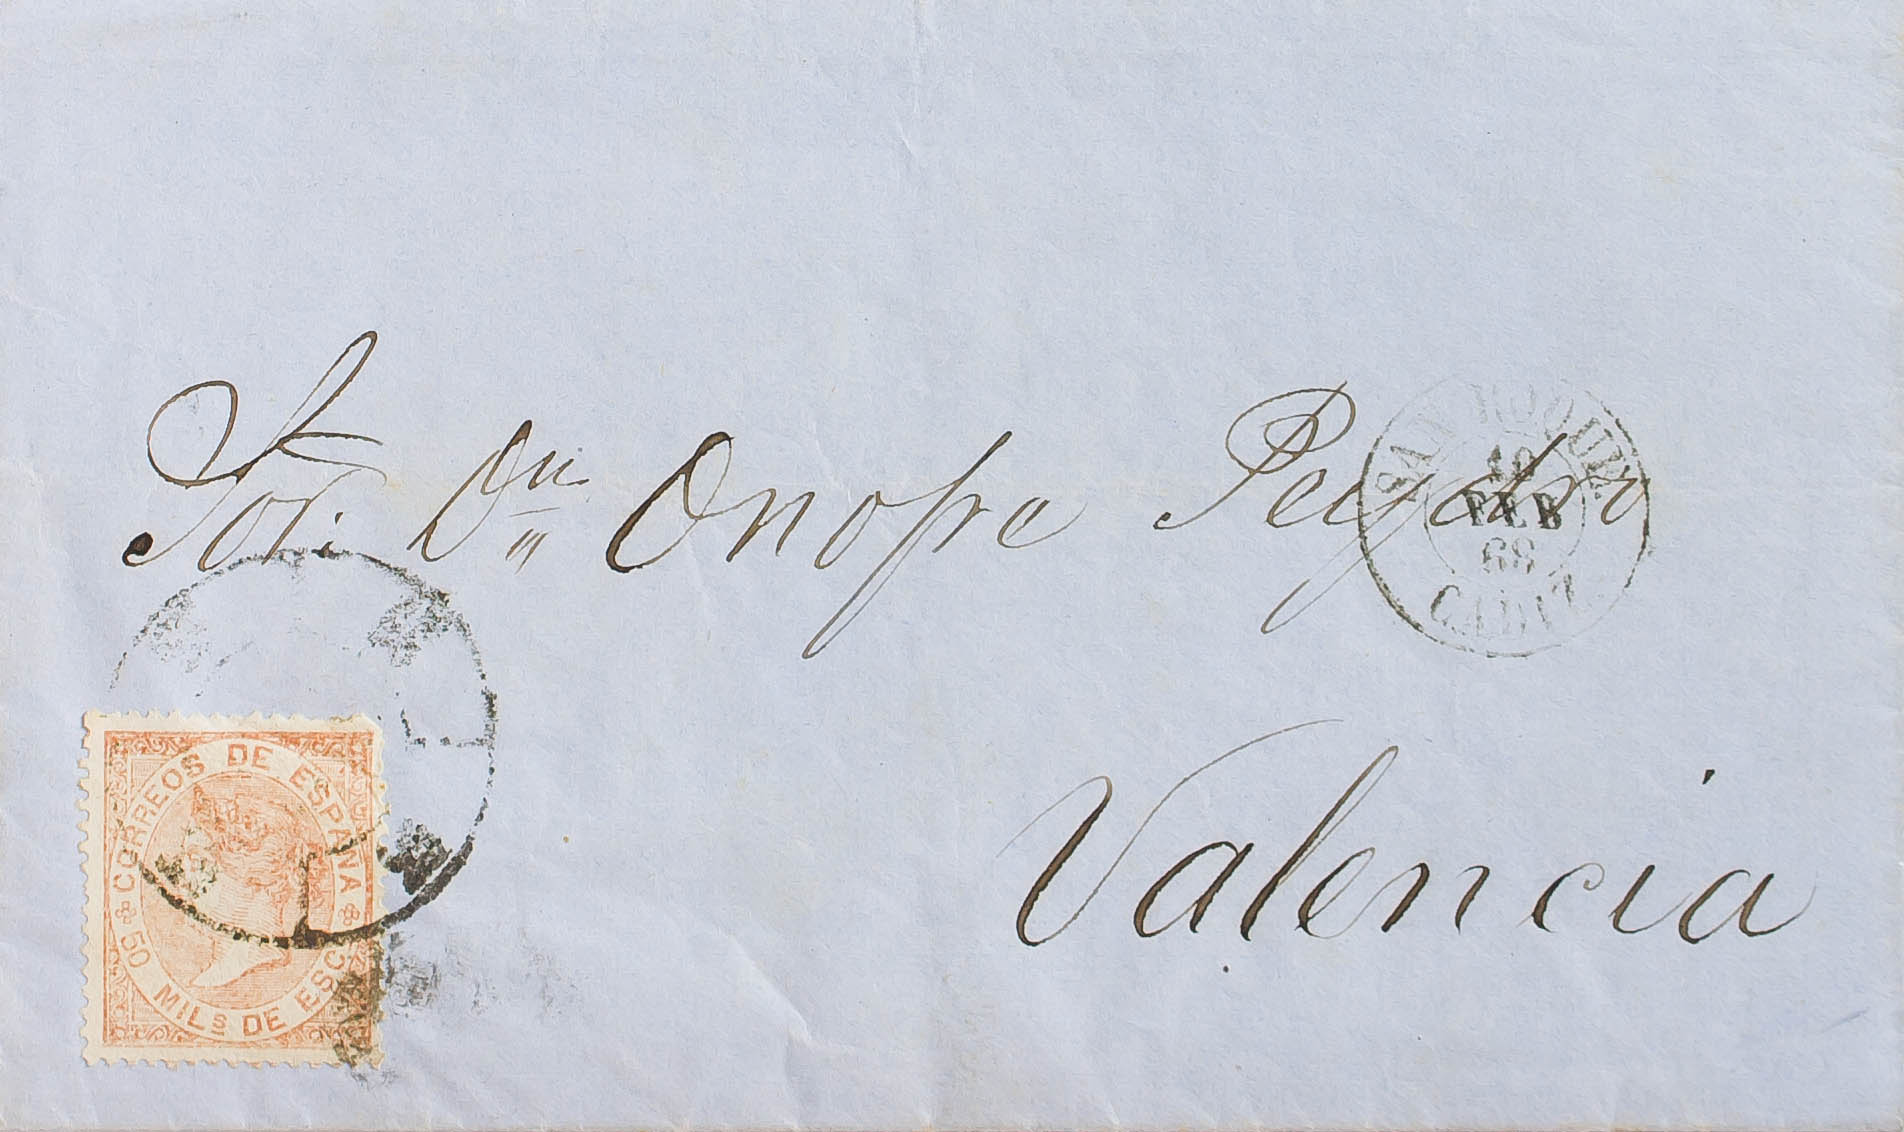 Sor. Dn Onofre
Valencia
SAN ROQUE
10
FEB
68
CADIZ
CORREOS DE ESPAÑA
50 MILs DE ESCO